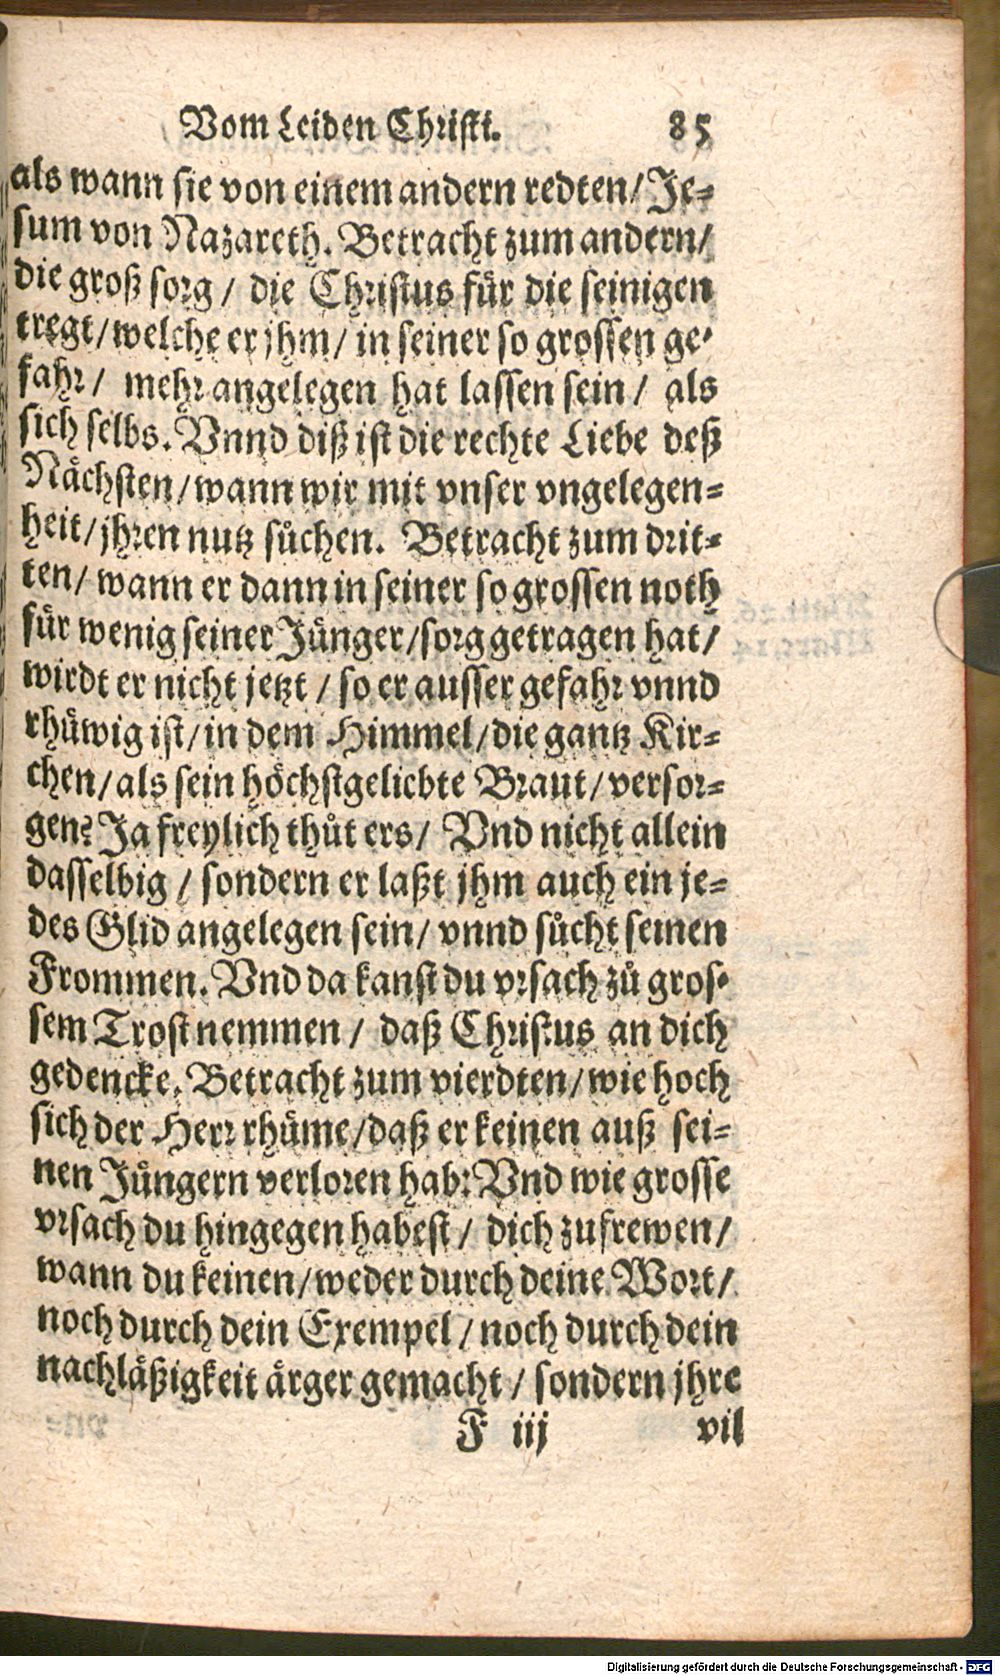 Vom Leiden Christi. 85
als wann sie von einem andern redten/ Je-
sum von Nazareth. Betracht zum andern/
die groß sorg/ die Christus für die seinigen
tregt/ welche er jhm/ in seiner so grossen ge-
fahr/ mehr angelegen hat lassen sein/ als
sich selbs. Vnnd diß ist die rechte Liebe deß
Nächsten/ wann wir mit vnser vngelegen-
heit/ jhren nutz sůchen. Betracht zum drit-
ten/ wann er dann in seiner so grossen noth
für wenig seiner Jünger/ sorg getragen hat/
wirdt er nicht jetzt/ so er ausser gefahr vnnd
rhüwig ist/ in dem Himmel/ die gantz Kir-
chen/ als sein höchstgeliebte Braut/ versor-
gen? Ja freylich thůt ers/ Vnd nicht allein
dasselbig/ sondern er laßt jhm auch ein je-
des Glid angelegen sein/ vnnd sůcht seinen
Frommen. Vnd da kanst du vrsach zů gros-
sem Trost nemmen/ daß Christus an dich
gedencke. Betracht zum vierdten/ wie hoch
sich der Herr rhüme/ daß er keinen auß sei-
nen Jüngern verloren hab: Vnd wie grosse
vrsach du hingegen habest/ dich zufrewen/
wann du keinen/ weder durch deine Wort/
noch durch dein Exempel/ noch durch dein
nachläßigkeit ärger gemacht/ sondern jhre
F iij vil
Digitalisierung gefördert durch die Deutsche Forschungsgemeinschaft - DFG